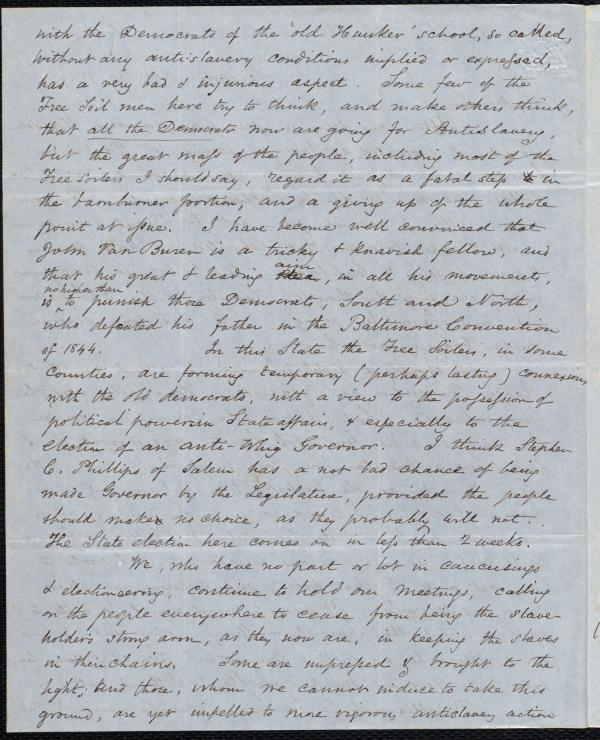 with the Democrats of the 'old Hunker' school, so called,
without any antislavery conditions implied or expressed,
has a very bad & injurious aspect. Some few of the
Free Soil men here try to think, and make others think,
that all the Democrats now are going for Antislavery,
but the great mass of the people, including most of the
Free Soilers I should say, regard it as a fatal step in
the barnburner portion, and a giving up of the whole
point at issue. I have become well convinced that
John Van Buren is a tricky & knavish fellow, and
that his great & leading aim, in all his movements,
is no higher than to punish those Democrats, South and North,
who defeated his father in the Baltimore Convention
of 1844. In this State the Free Soilers, in some
counties, are forming temporary (perhaps lasting) connexions
with the old democrats, with a view to the possession of
political power in State affairs, & especially to the
election of an anti-Whig Governor. I think Stephen
C. Phillips of Salem has a not bad chance of being
made Governor by the Legislature, provided the people
should make no choice, as they probably will not.
The State election here comes on in less than 2 weeks.
We, who have no part or lot in caucusings
& electioneering, continue to hold our meetings, calling
on the people everywhere to cease from being the slave-
holder's strong arm, as they now are, in keeping the slaves
in their chains. Some are impressed & brought to the
light, and those, whom we cannot induce to take this
ground, are yet impelled to more vigorous antislavery action